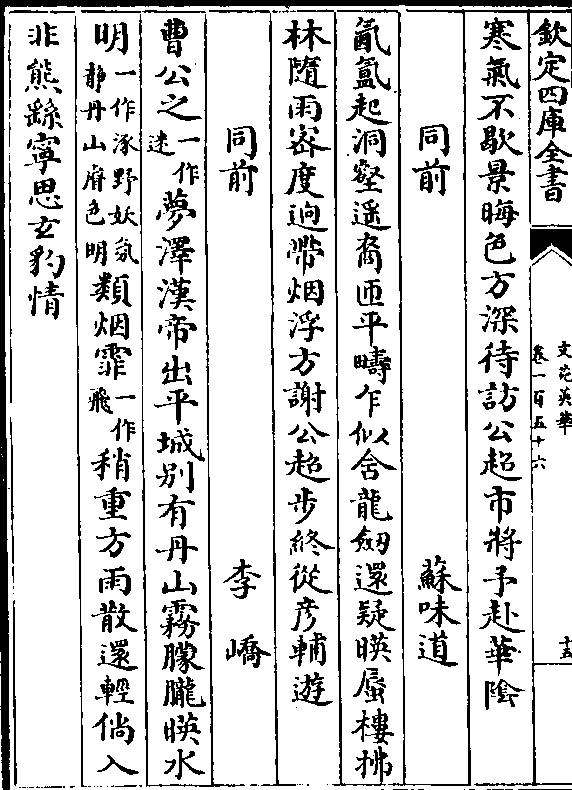 欽定四庫全書
文苑英華
卷一百五十六
十五
寒氣不歇景晦色方深待訪公超市將予赴華陰
同前 蘇味道
氤氳起洞壑遥裔匝平疇乍似舍龍劔還疑暎蜃樓拂
林隨雨密度迥帶烟浮方謝公超步終從彦輔遊
同前 李嶠
曹公之一作迷夢澤漢帝出平城别有丹山霧朦朧暎水
明一作涿野妖氛静丹山霽色明類烟霏一作飛稍重方雨散還輕倘入
非熊繇寧思玄豹情